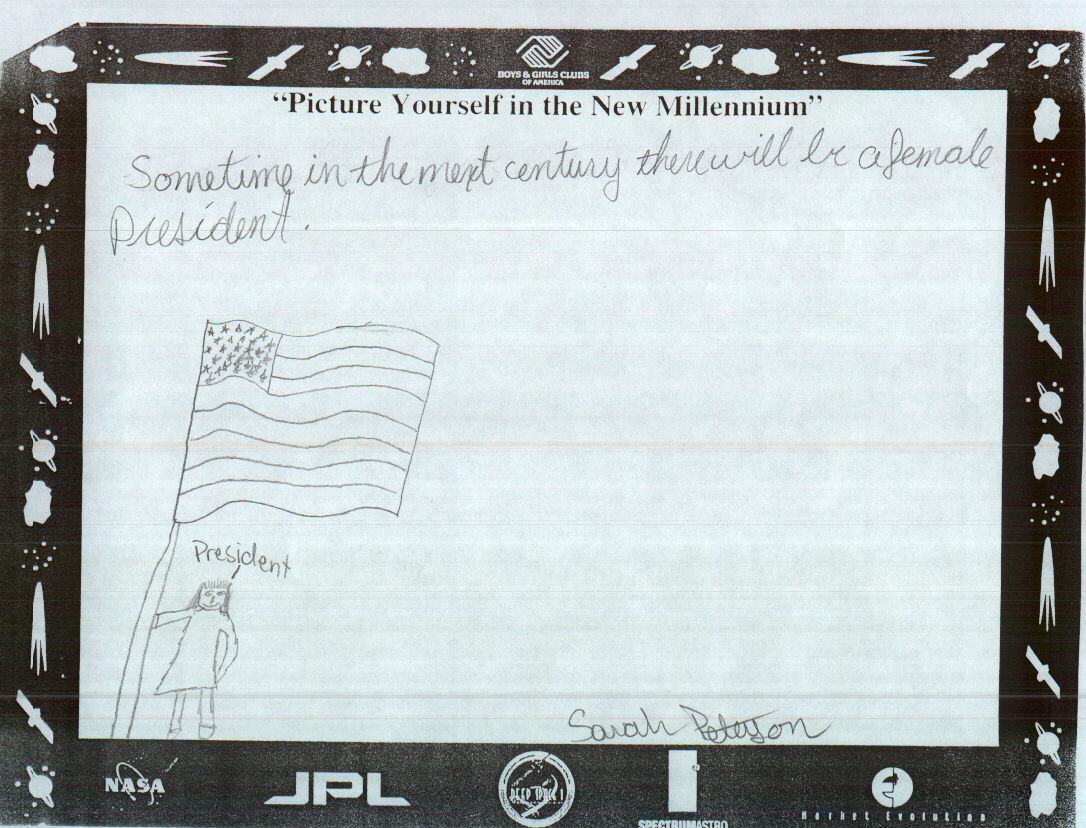 BOYS & GIRLS CLUBS
OF AMERICA
“Picture Yourself in the New Millennium”
Sometime in the next century there will be a female
president.
President
Sarah Peterson
NASA
JPL
DEEP SPACE 1
SPECTRUMASTRO
Market Evolution